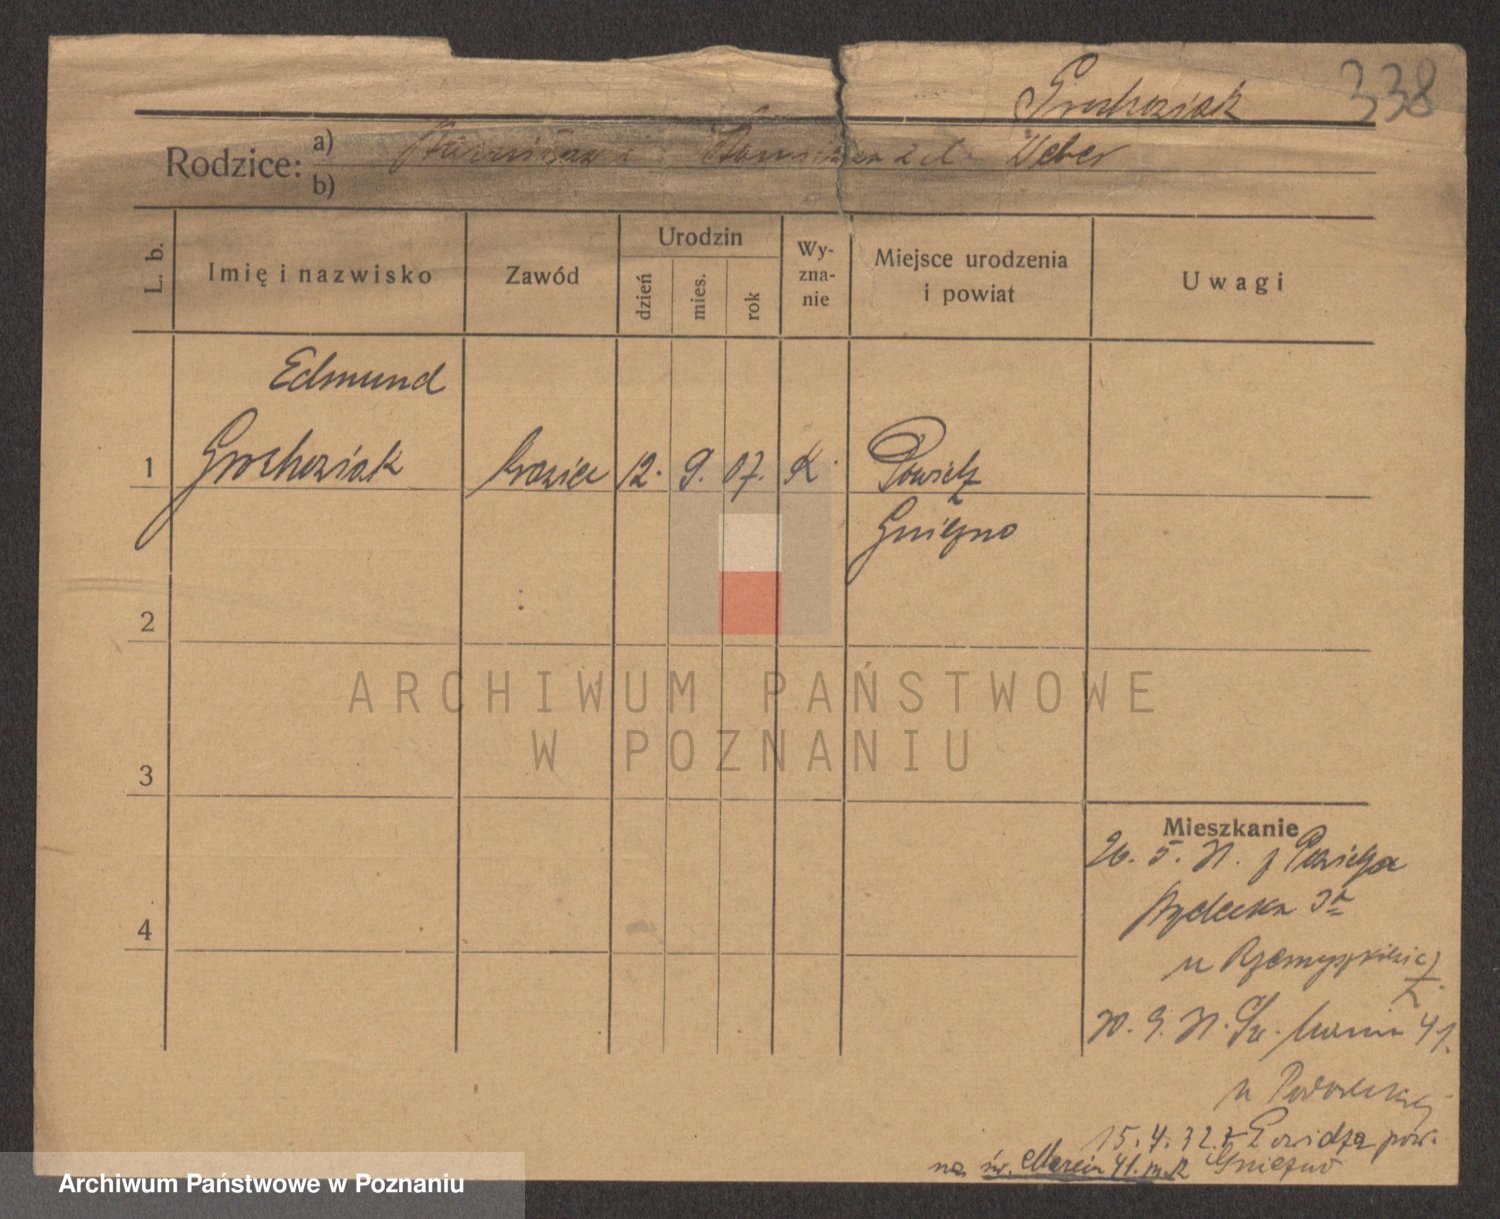 338
Grochoziak
Rodzice:
a) Weber
b)
L. b.
Imię i nazwisko
Zawód
Urodzin
dzień
mies.
rok
Wy-
zna-
nie
Miejsce urodzenia
i powiat
Uwagi
Edmund
1 Grochoziak 12. 9. 07. K. Powidz
Gniezno
2
3
4
ARCHIWUM PAŃSTWOWE
W POZNANIU
Mieszkanie
26. 5. 31. z Powidza
3a
u
30. 9. 31. Św. Marcin 41.
u
15.4.32 z Powidza pow.
na św. Marcin 41. Gniezno
Archiwum Państwowe w Poznaniu